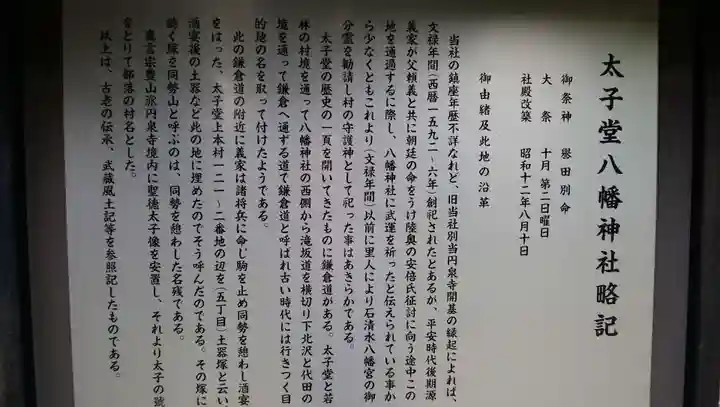 太子堂八幡神社略記
御祭神　誉田別命
大　祭　十月第二日曜日
社殿改築　昭和十二年八月十日
御由緒及此地の沿革
当社の鎮座年歴不詳なれど、旧当社別当円泉寺開基の縁起によれば、
文禄年間(西暦一五九二～六年)創祀されたとあるが、平安時代後期源
義家が父頼義と共に朝廷の命をうけ陸奥の安倍氏征討に向う途中この
地を通過するに際し、八幡神社に武運を祈ったと伝えられている事か
ら少なくともこれより(文禄年間)以前に里人により石清水八幡宮の御
分霊を勧請し村の守護神として祀った事はあきらかである。
太子堂の歴史の一頁を開いてきたものに鎌倉道がある。太子堂と若
林の村境を通って八幡神社の西側から滝坂道を横切り下北沢と代田の
境を通って鎌倉へ通ずる道で鎌倉道と呼ばれ古い時代には行きつく目
的地の名を取って付けたようである。
此の鎌倉道の附近に義家は諸将兵に命じ駒を止め同勢を憩わし酒宴
をはった、太子堂上本村一二一～二番地の辺を(五丁目)土器塚と云い、
酒宴後の土器など此の地に埋めたのでそう呼んだのである。その塚に
続く塚を同勢山と呼ぶのは、同勢を憩わした名残である。
真言宗豊山派円泉寺境内に聖徳太子像を安置し、それより太子の號
をとりて部落の村名とした。
以上は、古老の伝承、武蔵風土記等を参照記したものである。